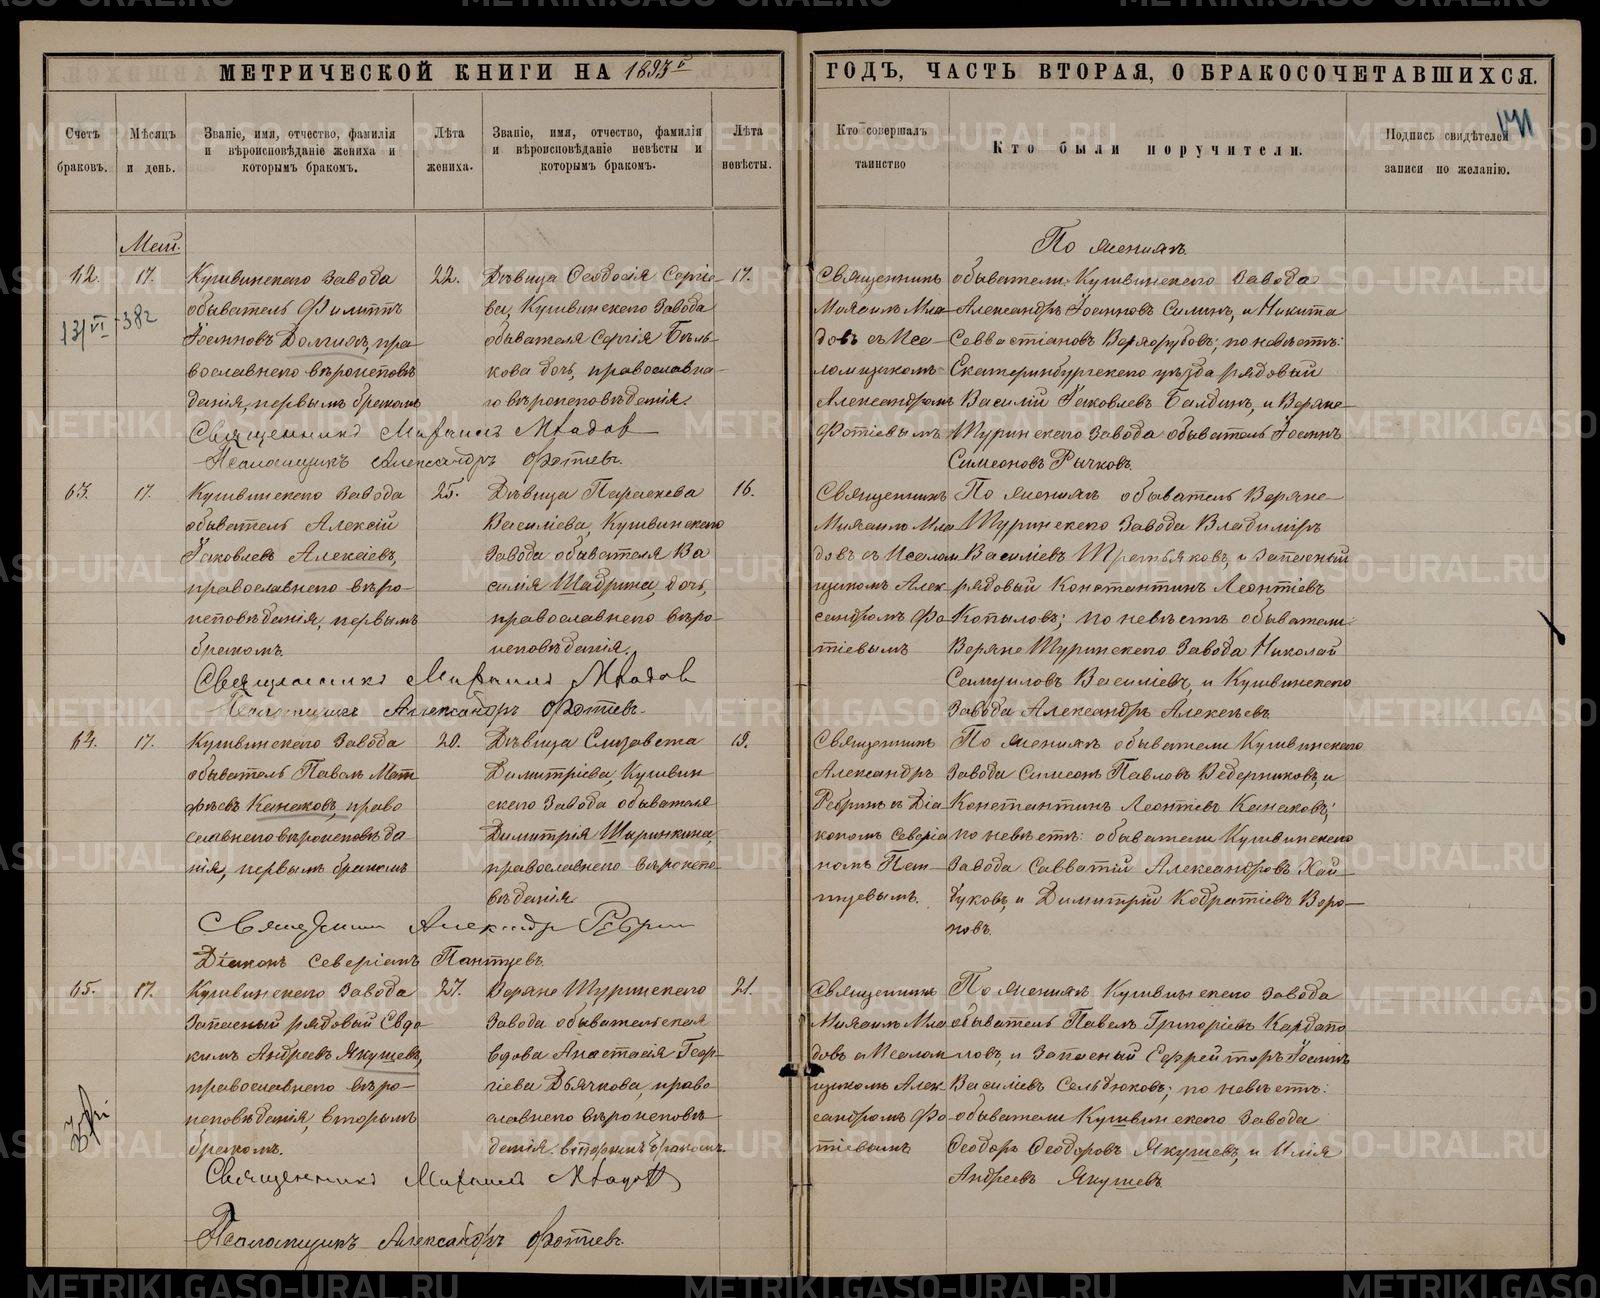 МЕТРИЧЕСКОЙ КНИГИ НА 1893 г
ГОДЪ, ЧАСТЬ ВТОРАЯ, О БРАКОСОЧЕТАВШИХСЯ.
Счетъ браковъ.
Мѣсяцъ и день.
Званіе, имя, отчество, фамилія
и вѣроисповѣданіе жениха и
которымъ бракомъ.
Лѣта жениха.
Званіе, имя, отчество, фамилія
и вѣроисповѣданіе невѣсты и
которымъ бракомъ.
Лѣта невѣсты.
Кто совершалъ
таинство
Кто были поручители.
Подпись свидѣтелей
записи по желанію.
Май.
62.
17.
Кушвинскаго Завода
обыватель Филиппъ
Іоанновъ Долгихъ, пра-
вославнаго вѣроисповѣ
данія, первымъ бракомъ
22.
Дѣвица Ѳеодосія Сергіе-
ва, Кушвинскаго Завода
обывателя Сергія Бѣль-
кова дочь, православна-
го вѣроисповѣданія.
17.
Священникъ
Михаилъ Мла-
довъ съ Пса-
ломщикомъ
Александромъ
Фотіевымъ
По женихѣ
обыватели Кушвинскаго Завода
Александръ Іоанновъ Силинъ, и Никита
Савва­стіановъ Верхорубовъ; по невѣстѣ:
Екатеринбургскаго уѣзда рядовый
Василій Іаковлевъ Балдинъ, и Верхне-
Туринскаго Завода обыватель Іоаннъ
Симеоновъ Рычковъ.
Священникъ Михаилъ Младов
Псаломщикъ Александръ Фотіевъ.
63.
17.
Кушвинскаго Завода
обыватель Алексій
Іаковлевъ Алексѣевъ,
православнаго вѣро-
исповѣданія, первымъ
бракомъ.
25.
Дѣвица Параскева
Василіева, Кушвинскаго
Завода обывателя Ва
силія Шадрина, дочь,
православнаго вѣро-
исповѣданія.
16.
Священникъ
Михаилъ Мла
довъ съ Псалом
щикомъ Алек-
сандромъ Фо
тіевымъ
По женихѣ обыватель Верхне-
Туринскаго Завода Владиміръ
Василіевъ Третьяковъ, и Запасный
рядовый Константинъ Леонтіевъ
Копыловъ; по невѣстѣ обыватели:
Верхне Туринскаго Завода Николай
Самуиловъ Василіевъ, и Кушвинскаго
Завода Александръ Алексѣевъ.
Священникъ Михаилъ Младов
Псаломщикъ Александръ Фотіевъ.
64.
17.
Кушвинскаго Завода
обыватель Павелъ Мат
фѣевъ Канаковъ, право
славнаго вѣроисповѣда
нія, первымъ бракомъ
20.
Дѣвица Елизавета
Димитріева, Кушвин
скаго Завода обывателя
Димитрія Ширинкина,
православнаго вѣроиспо-
вѣданія
19.
Священникъ
Александръ
Ребринъ съ Діа
кономъ Северіа
номъ Пан-
тцевымъ.
По женихѣ обыватели Кушвинскаго
Завода Симеонъ Павловъ Ведерниковъ, и
Константинъ Леонтіевъ Канаковъ;
по невѣстѣ: обыватели Кушвинскаго
Завода Савватій Александровъ Хай-
буковъ, и Димитрій Кодратіевъ Воро-
новъ.
Священникъ Александр Ребрин
Діаконъ Северіанъ Пантцевъ.
65.
17.
Кушвинскаго Завода
Запасный рядовый Евдо-
кимъ Андреевъ Якушевъ,
православнаго вѣро-
исповѣданія, вторымъ
бракомъ.
27.
Верхне Туринскаго
Завода обывательская
вдова Анастасія Геор-
гіева Дьячкова, право
славнаго вѣроисповѣ-
данія. вторымъ бракомъ.
21.
Священникъ
Михаилъ Мла
довъ съ Псалом
щикомъ Алек
сандромъ Фо
тіевымъ
По женихѣ Кушвинскаго Завода
обыватель Павелъ Григоріевъ Кардапо
ловъ, и Запасный Ефрейторъ Іоаннъ
Василіевъ Сельдюковъ; по невѣстѣ:
обыватели Кушвинскаго Завода
Ѳеодоръ Ѳеодоровъ Якушевъ, и Илія
Андреевъ Якушевъ.
Священникъ Михаилъ Младов
Псаломщикъ Александръ Фотіевъ.
METRIKI.GASO-URAL.RU